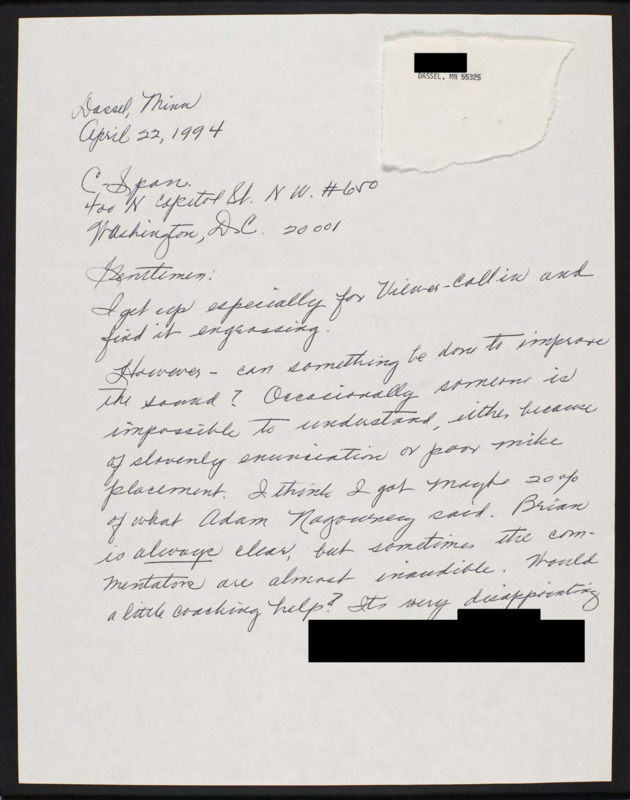 DASSEL, MN 55325
Dassel, Minn
April 22, 1994
C Span.
400 N Capitol St. N W. #650
Washington, D.C. 20001
Gentlemen:
I get up especially for Viewer-Call in and
find it engrossing.
However - can something be done to improve
the sound? Occasionally someone is
impossible to understand, either because
of slovenly enunciation or poor mike
placement. I think I got maybe 20%
of what Adam Nagourney said. Brian
is always clear, but sometimes the com-
mentators are almost inaudible. Would
a little coaching help? Its very disappointing